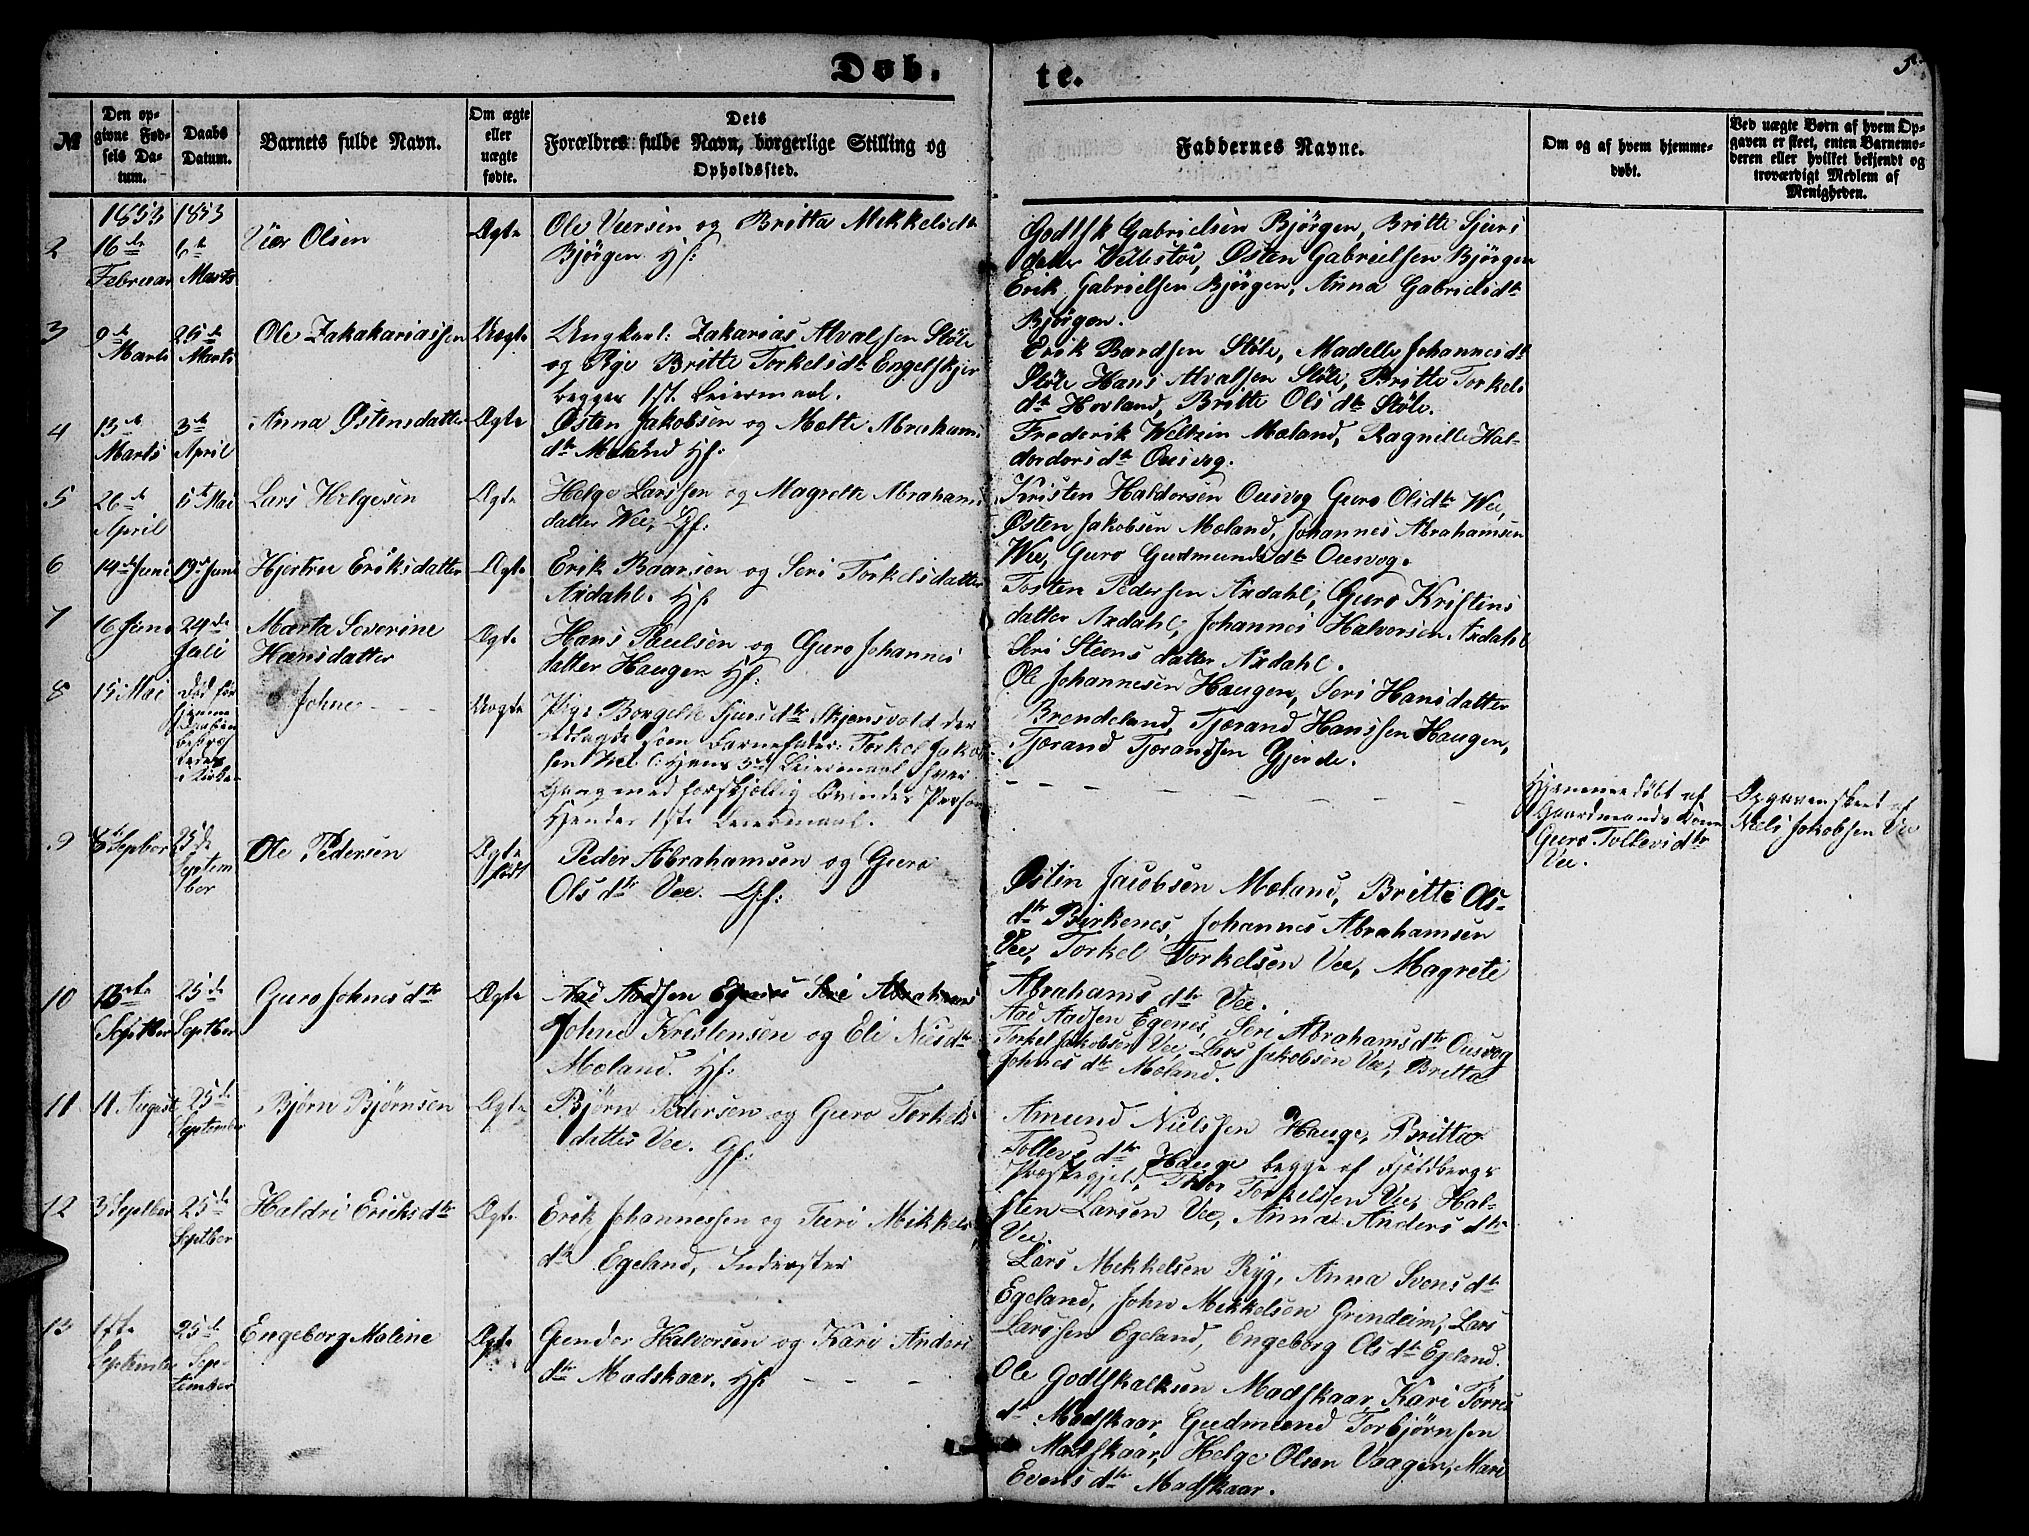 Døb.
te.
5
№
Den op-
givne Fød-
sels Da-
tum.
Daabs
Datum.
Barnets fulde Navn.
Om ægte
eller
uægte
fødte.
Dets
Forældres fulde Navn, borgerlige Stilling og
Opholdssted.
Faddernes Navne.
Om og af hvem hjemme-
døbt.
Ved uægte Børn af hvem Op-
gaven er skeet, enten Barnemo-
deren eller hvilket bekjendt og
troværdigt Medlem af
Menigheden.
1853 1853
2
16de
Februar
6te
Marts
Olsen
Ægte
Ole og Britta Mikkelsdtr
Bjørgen Hf:
Godtsk Gabrielsen Bjørgen, Britte Sjurs
datter Østen Gabrielsen Bjørgen
Erik Gabrielsen Bjørgen, Anna Gabrielsdtr
Bjørgen.
3
9de
Marts
25de
Marts
Ole Zakakariassen
Uægte
Ungkarl: Zakarias Alvalsen Støle
og Pige Britte Torkelsdtr Engelskjer
begges 1ste Leiermaal.
Erik Bardsen Støle, Madelle Johannesdtr
Støle Hans Alvalsen Støle, Britte Torkels
dtr Hovland, Britte Olsdtr Støle.
4
13de
Marts
3de
April
Anna Østensdatter
Ægte
Østen Jakobsen og Abrahams
dtr Moland Hf:
Frederik Weltzin Moland, Ragnille Hal-
dordorsdtr Ousvog.
5
26de
April
5te Mai
Lars Helgesen
Ægte
Helge Larssen og Magrette Abrahams
datter Wee, Gf:
Kristen Haldorsen Ousvog Guro Olsdtr Wee,
Østen Jakobsen Moland, Johannes Abrahamsen
Wee, Guro Gudmundsdtr Ousvog.
6
14de Juni
19de Juni
Hjertru Eriksdatter
Ægte
Erik Baarsen og Seri Torkelsdatter
Axdahl. Hf
Tosten Pedersen Axdahl, Guro Kristens
datter Axdahl, Johannes Halvorsen Axdahl
Seri Steensdatter Axdahl.
7
16 Juni
24de
Juli
Marta Severine
Hansdatter
Ægte
Hans Paulsen og Guro Johannes
datter Haugen Hf:
Ole Johannesen Haugen, Seri Hansdatter
Brendeland, Tjerand Hanssen Haugen,
Tjerand Tjerandsen Gjerde.
8
15 Mai
Død før
Johne
Uægte
Pige Borgelle Sjursdtr Skjensvold der
udlagde som Barnefader: Torkel Jakob
sen Vee. Hans 3die Leiermaal hver
Gang med forskjellig Qvindes Person
Hendes 1ste Leiermaal.
Hjemmedøbt af
Gaardmands Kone
Guro Tollevsdtr
Vee.
Opgaven skeet af
Niels Jakobsen Vee
9
8de Septber
25de
Septem
ber
Ole Pedersen
Ægte
født
Peder Abrahamsen og Guro
Olsdtr Vee. Gf:
Østen Jacobsen Moland, Britte Ols-
dtr Birkenes, Johannes Abrahamsen
Vee, Torkel Torkelsen Vee, Magrete
Abrahamsdtr Vee.
10
Septber
25de
Septber
Guro Johnesdtr
Ægte
Aad Aadsen Egenes Seri Abrahams
Johne Kristensen og Eli Nielsdtr
Moland. Hf:
Aad Aadsen Egenes, Seri Abrahamsdtr Ousvog
Torkel Jakobsen Vee, Lars Jakobsen Vee, Britta
Johnesdtr Moland.
11
11 August
25de
September
Bjørn Bjørnsen
Ægte
Bjørn Pedersen og Guro Torkels-
datter Vee. Gf:
Amund Nielssen Hauge, Britta
Tollevsdtr Hauge begge af Fjeldbergs
Præstegjeld, Thor Torkelsen Vee, Hal-
sten Larsen Vee, Anna Andersdtr
Vee.
12
3 Septber
25de
Septber
Haldri Eriksdtr
Ægte
Erik Johannessen og Turi Mikkels
dtr Egeland, Inderster
Lars Mikkelsen Ryg, Anna Svensdtr
Egeland, John Mikkelsen Grindeim, Lars
Larssen Egeland, Engeborg Olsdtr Egeland.
13
17de
September
25de
Sep-
tember
Engeborg Maline
Ægte
Gunder Halvorsen og Kari Anders
dtr Madskaar. Hf:
Ole Godtskalksen Madskaar, Kari Torres
dtr Madskaar, Gudmund Torbjørnsen
Madskaar, Helge Olsen Vaagen, Mari
Evensdtr Madskaar.